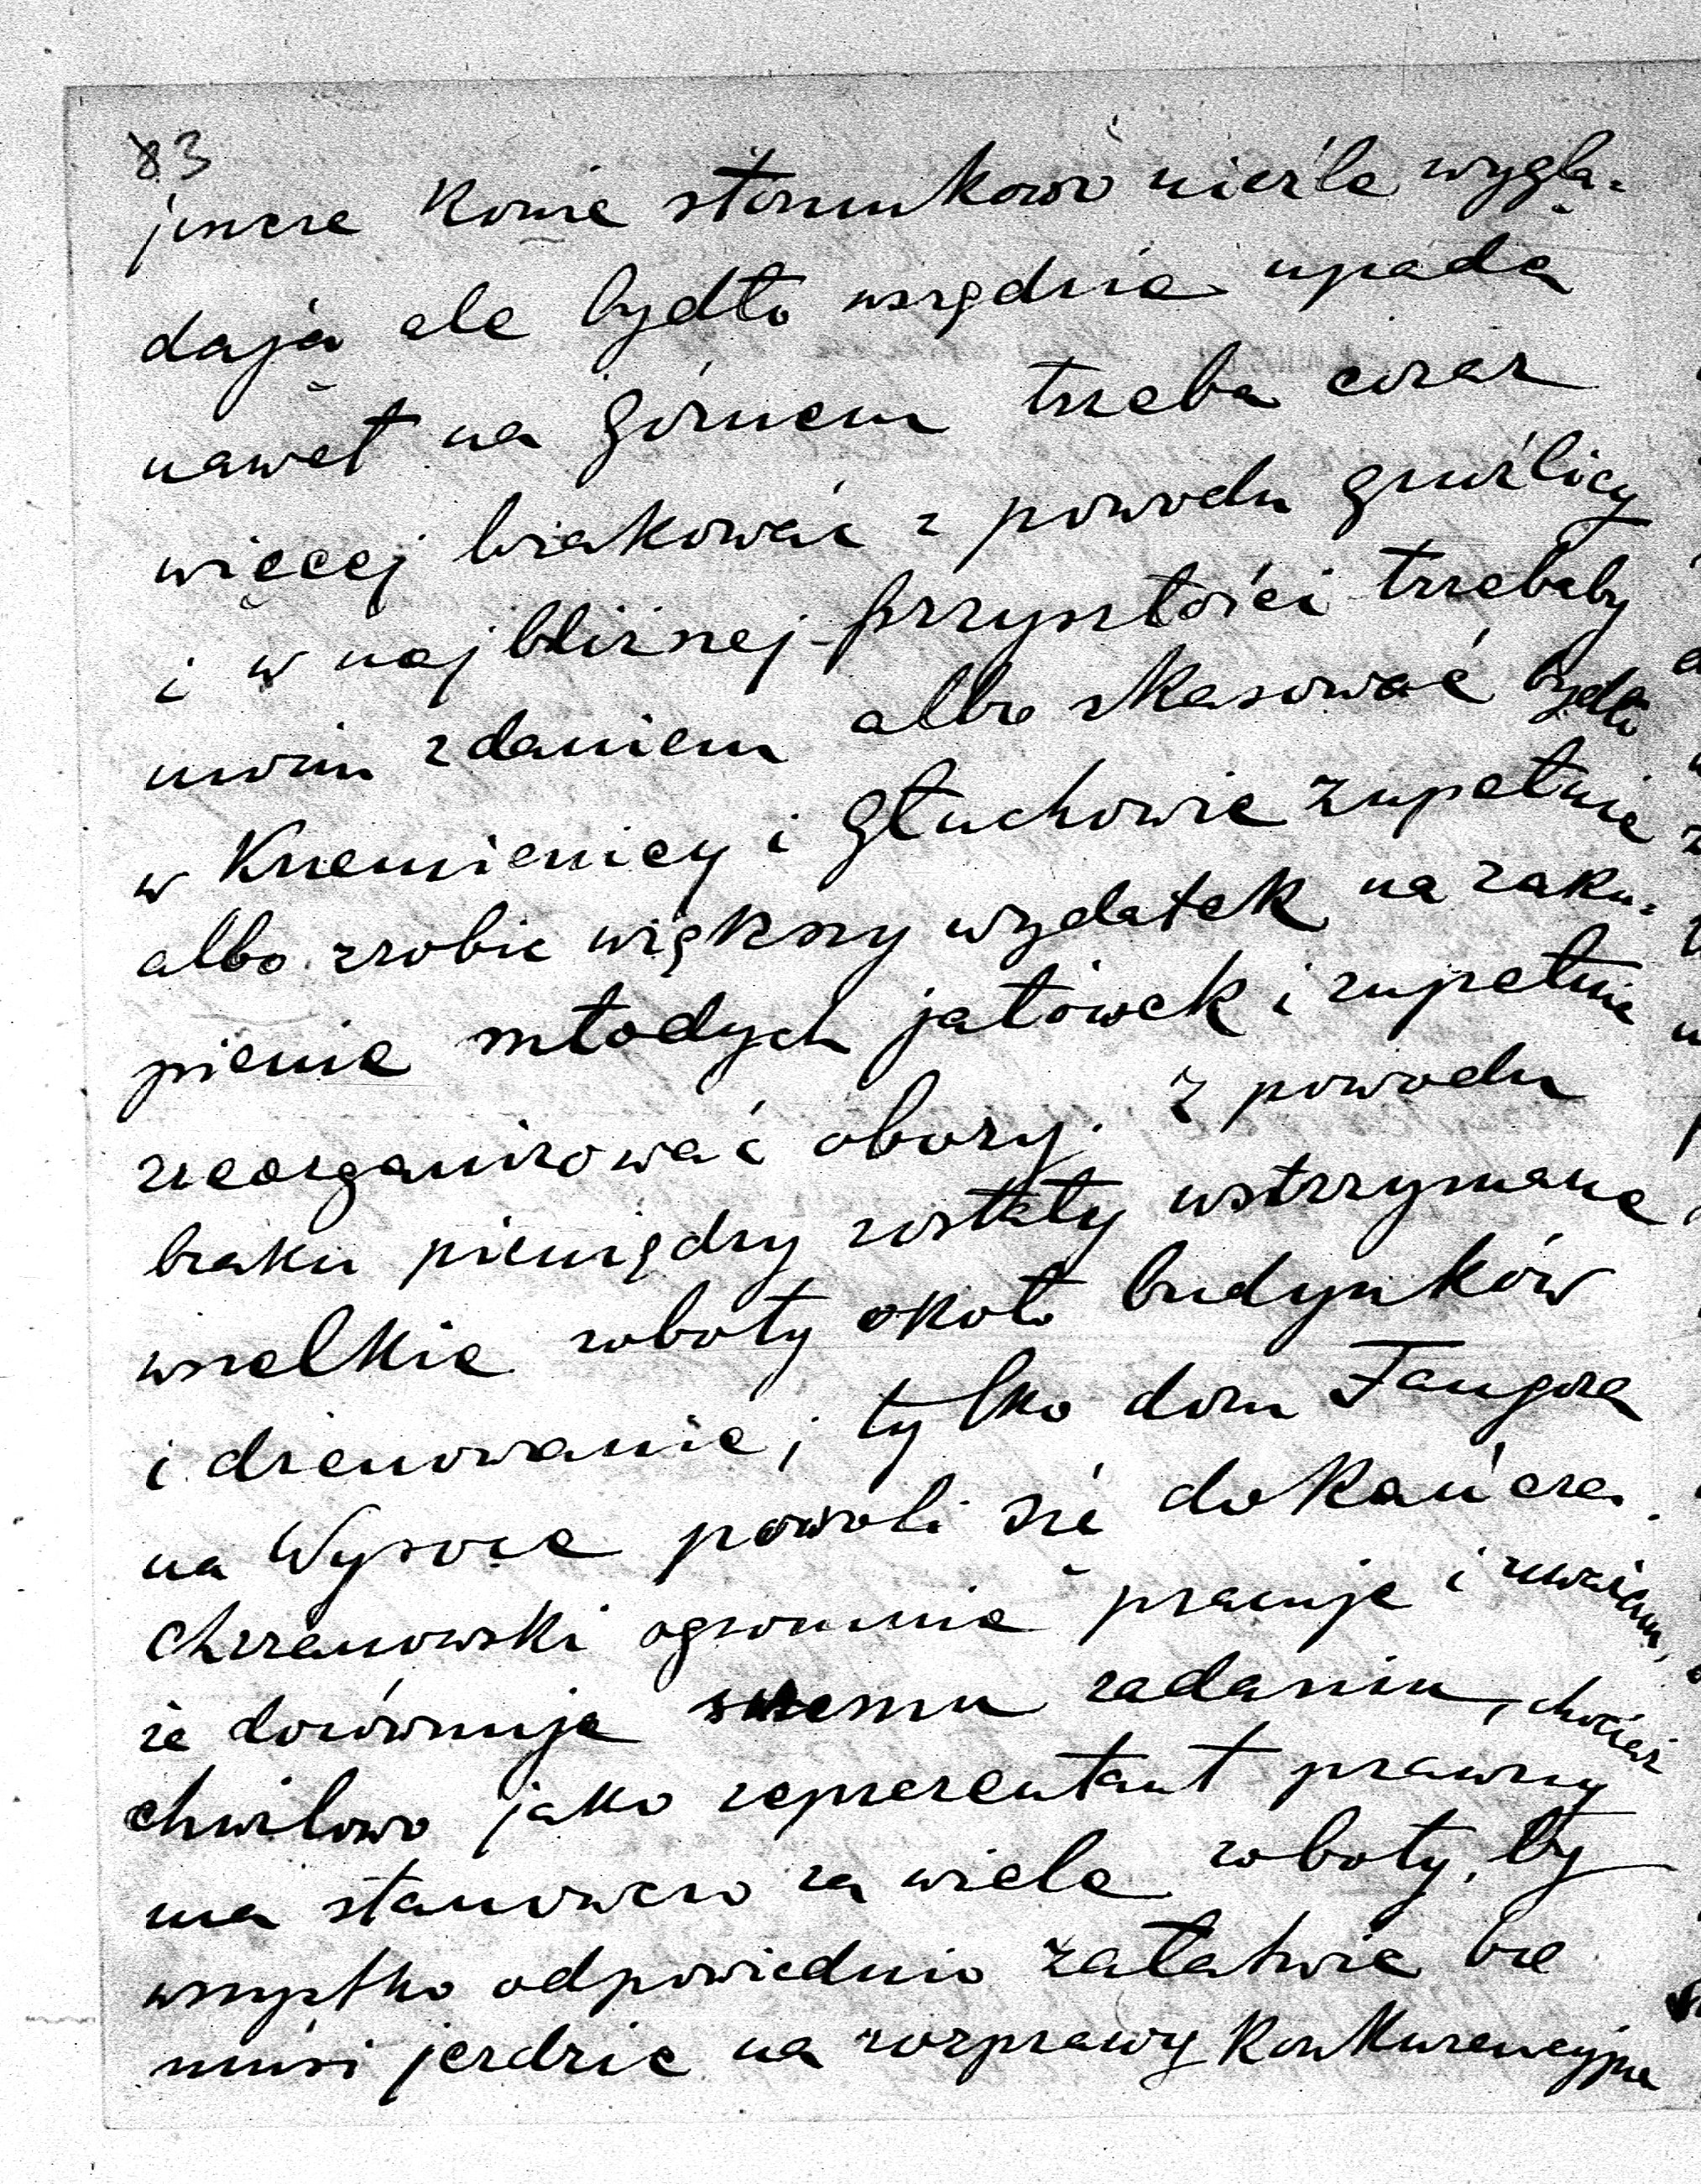 83
jeszcze konie stosunkowo nieźle wyglą-
dają ale bydło wszędzie upada
nawet na Górnem trzeba coraz
więcej brakować z powodu gruźlicy
i w najbliższej przyszłości trzebaby
moim zdaniem albo skasować bydło
w Krzemienicy i Głuchowie zupełnie
albo zrobić większy wydatek na zaku-
pienie młodych jałówek i zupełnie
zreorganizować obory. Z powodu
braku pieniędzy zostały wstrzymane
wszelkie roboty około budynków
i drenowanie; tylko dom Fangora
na Wysoce powoli się dokańcza.
Chrzanowski ogromnie pracuje i uważam,
że dorównuje swemu zadaniu, chociaż
chwilowo jako reprezentant prawny
ma stanowczo za wiele roboty, by
wszystko odpowiednio załatwić bo
musi jeździć na rozprawy konkurencyjne